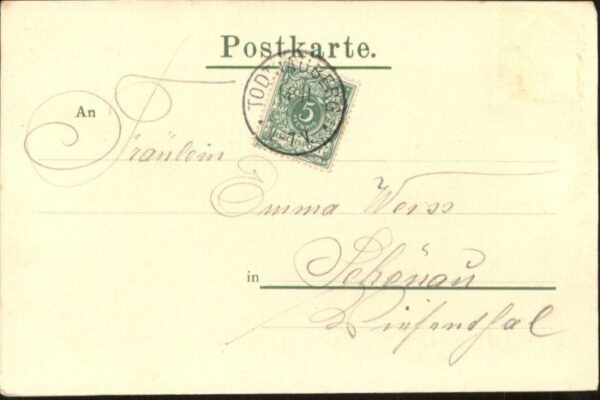 Postkarte.
TODTNAUBERG
5
PFENNIG
An Fräulein
Emma Weiss
in Schönau
Wiesenthal